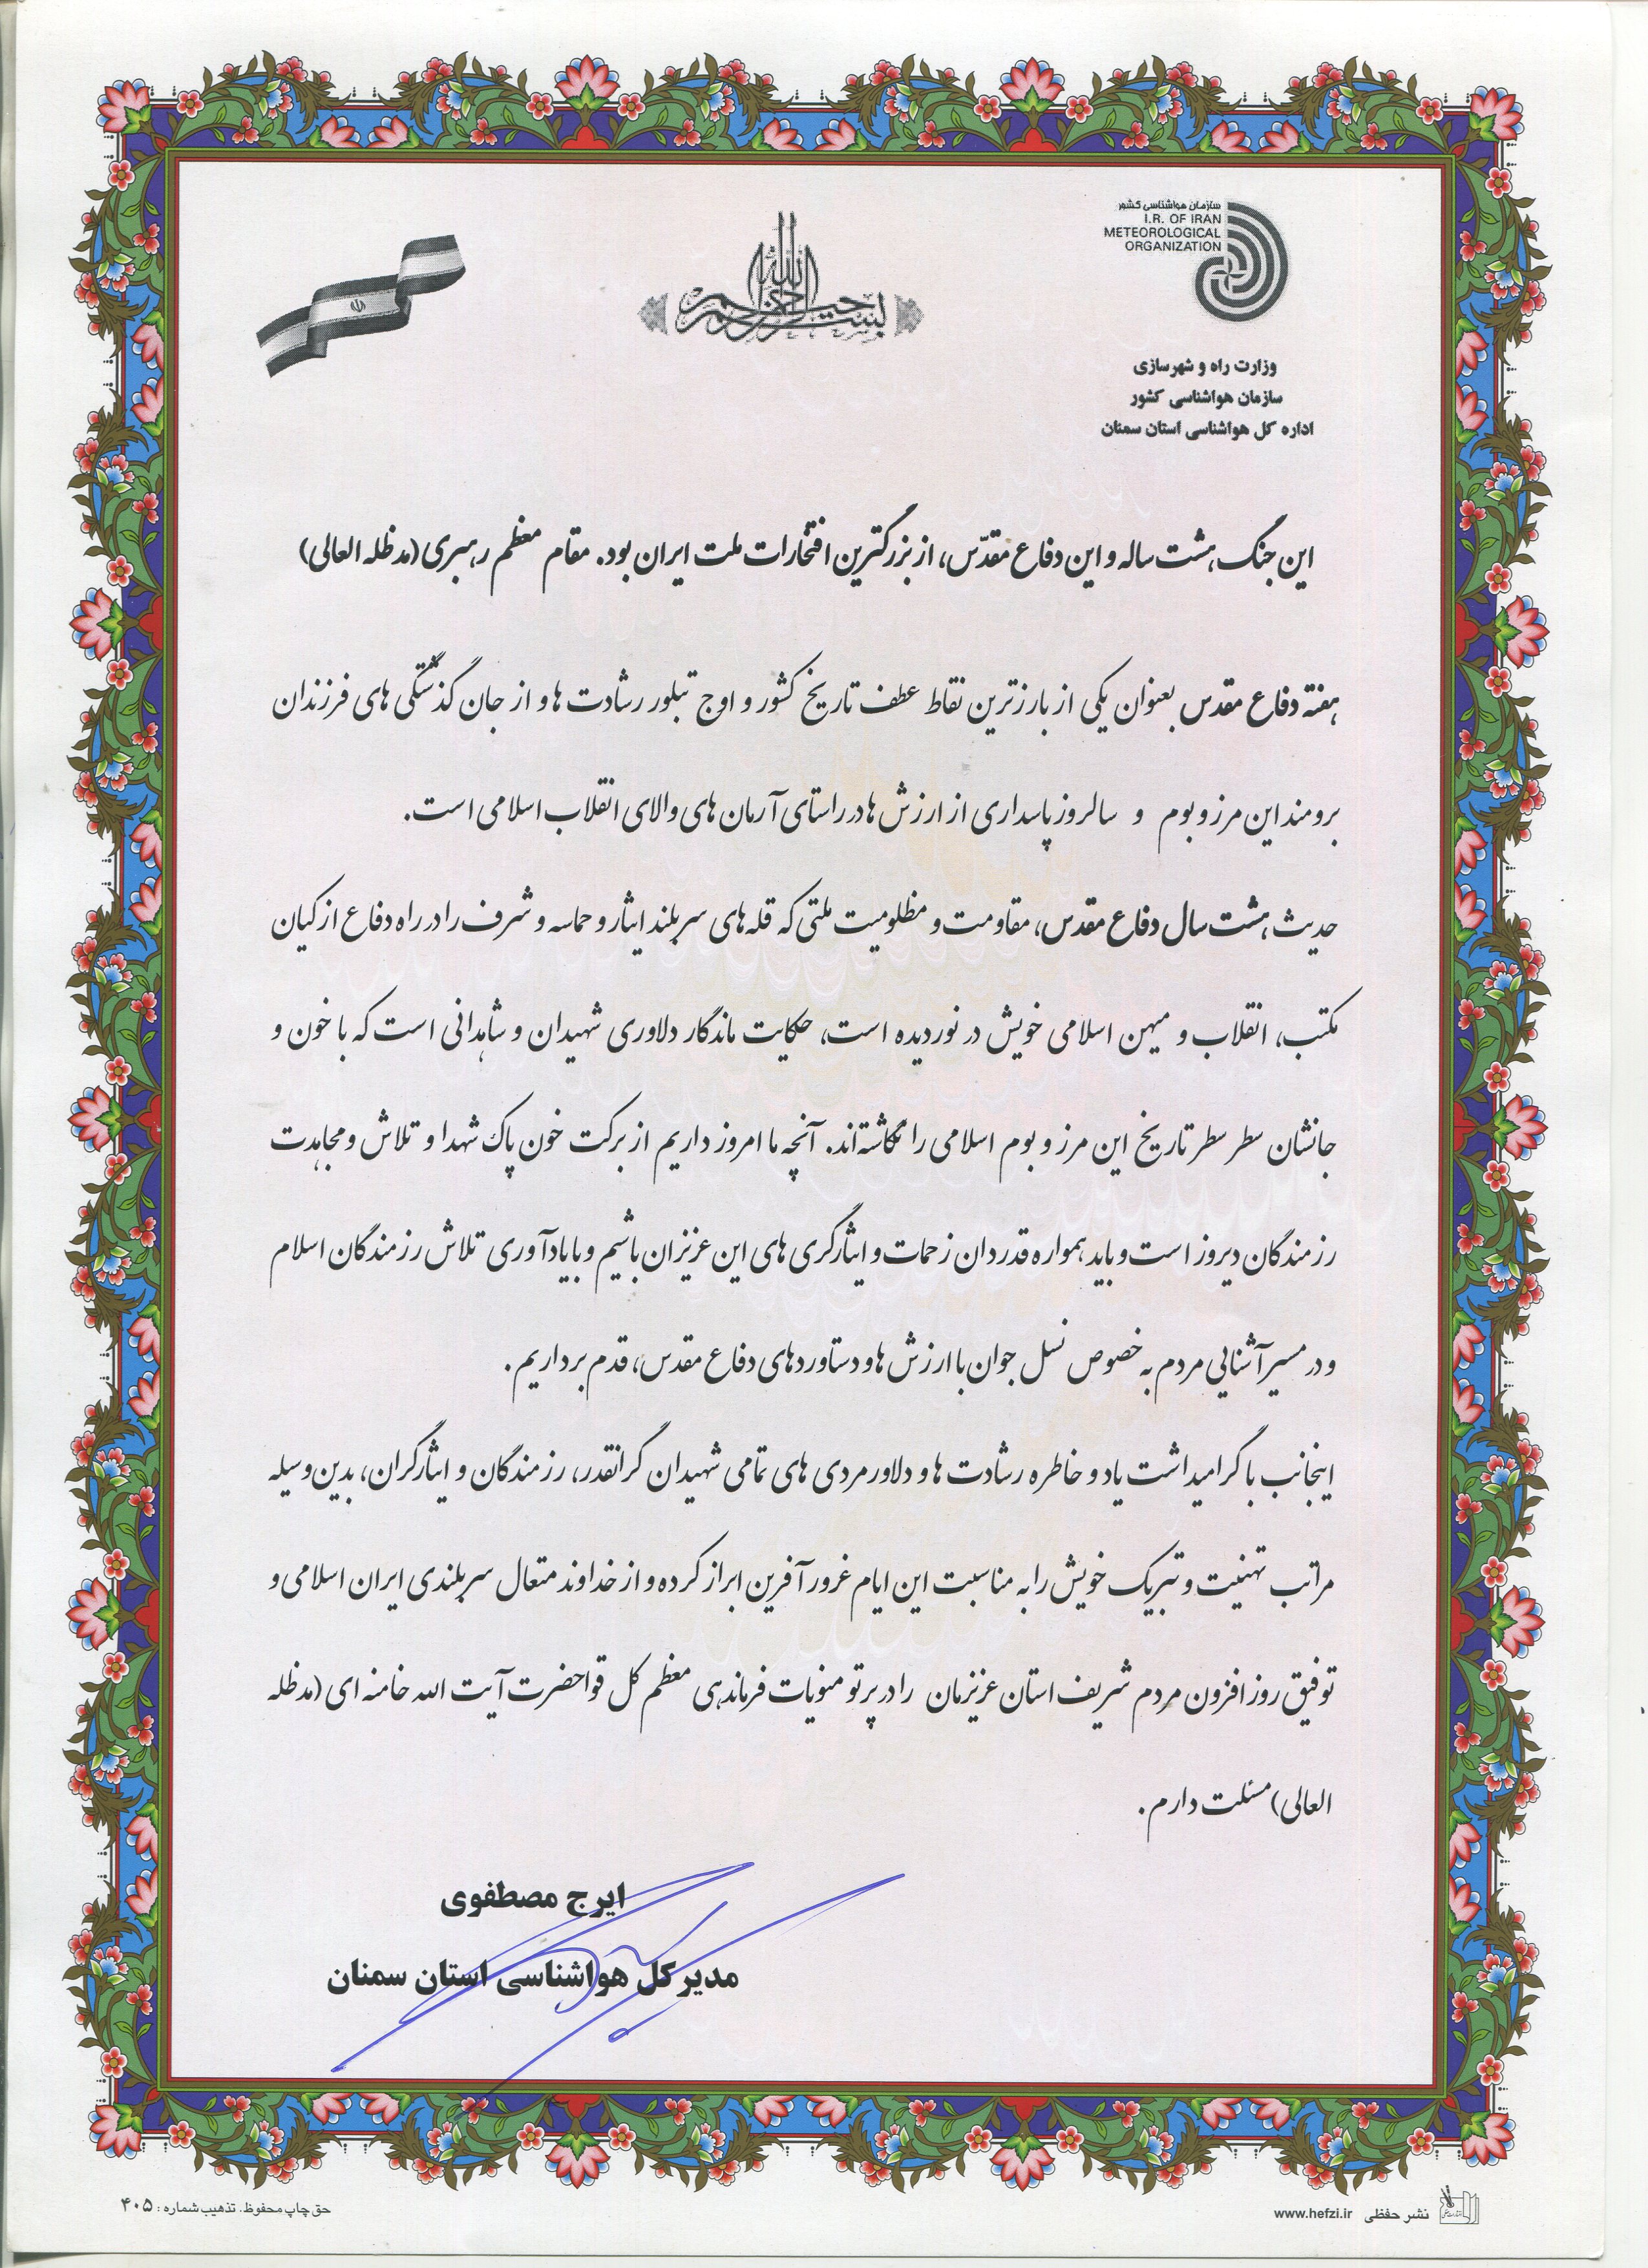 سازمان هواشناسی کشور
I.R. OF IRAN
METEOROLOGICAL
ORGANIZATION
بسم الله الرحمن الرحیم
وزارت راه و شهرسازی
سازمان هواشناسی کشور
اداره کل هواشناسی استان سمنان
این جنگ هشت ساله و این دفاع مقدّس، از بزرگترین افتخارات ملت ایران بود. مقام معظم رهبری (مدظله العالی)
هفته دفاع مقدس بعنوان یکی از بارزترین نقاط عطف تاریخ کشور و اوج تبلور رشادت ها و از جان گذشتگی های فرزندان
برومند این مرز و بوم و سالروز پاسداری از ارزش ها در راستای آرمان های والای انقلاب اسلامی است.
حدیث هشت سال دفاع مقدس، مقاومت و مظلومیت ملتی که قله‌های سربلند ایثار و حماسه و شرف را در راه دفاع از کیان
مکتب، انقلاب و میهن اسلامی خویش در نوردیده است، حکایت ماندگار دلاوری شهیدان و شاهدانی است که با خون و
جانشان سطر سطر تاریخ این مرز و بوم اسلامی را نگاشته‌اند. آنچه ما امروز داریم از برکت خون پاک شهدا و تلاش و مجاهدت
رزمندگان دیروز است و باید همواره قدردان زحمات و ایثارگری های این عزیزان باشیم و با یادآوری تلاش رزمندگان اسلام
و در مسیر آشنایی مردم به خصوص نسل جوان با ارزش ها و دستاوردهای دفاع مقدس، قدم برداریم.
اینجانب با گرامیداشت یاد و خاطره رشادت ها و دلاورمردی های تمامی شهیدان گرانقدر، رزمندگان و ایثارگران، بدین وسیله
مراتب تهنیت و تبریک خویش را به مناسبت این ایام غرورآفرین ابراز کرده و از خداوند متعال سربلندی ایران اسلامی و
توفیق روز افزون مردم شریف استان عزیزمان را در پرتو منویات فرماندهی معظم کل قوا حضرت آیت الله خامنه ای (مدظله
العالی) مسئلت دارم.
ایرج مصطفوی
مدیر کل هواشناسی استان سمنان
حق چاپ محفوظ. تذهیب شماره: ۴۰۵
نشر حفظی www.hefzi.ir